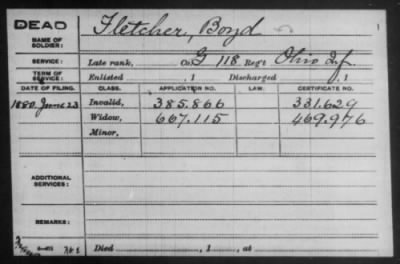 DEAD
NAME OF SOLDIER: Fletcher, Boyd
SERVICE: Late rank, Co. G 118 Regt Ohio Inf.
TERM OF SERVICE: Enlisted , 1 Discharged , 1
DATE OF FILING. CLASS. APPLICATION NO. LAW. CERTIFICATE NO.
1880 June 23 Invalid, 385.866 331.629
Widow, 667.115 469.976
Minor,
ADDITIONAL SERVICES:
REMARKS:
Died , 1 , at